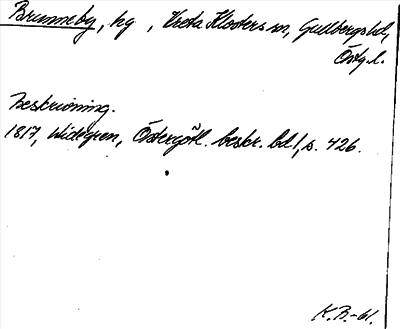 Brunneby, hg, Vreta Klosters sn, Gullbergs hd,
Östg. l.
Beskrivning.
1817, Widegren, Östergötl. beskr. bd 1, s. 426.
K.B.-61.